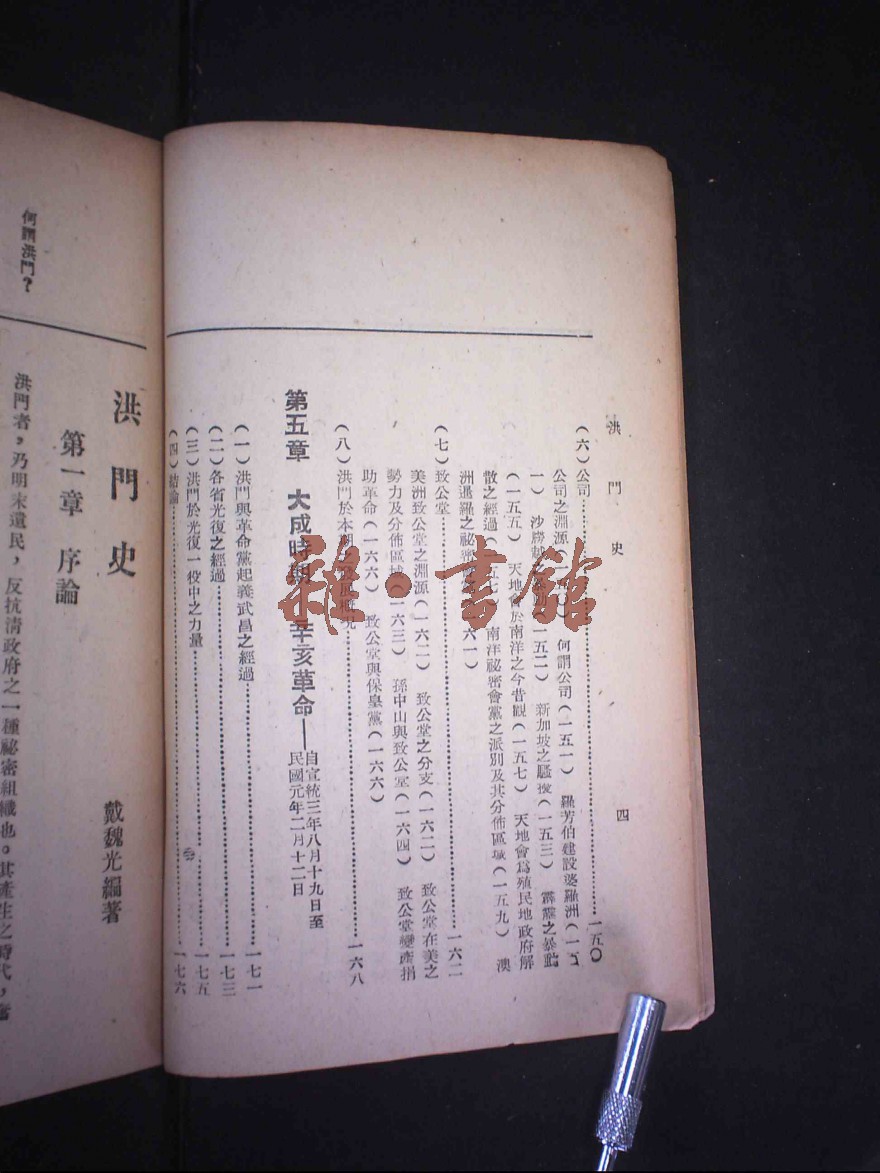 洪門史
四
(六)公司…………一五〇
公司之淵源(一 何謂公司(一五一) 羅芳伯建設婆羅洲(一五
一) 沙勝越之暴動(一五二) 新加坡之騷擾(一五三) 霹靂之暴動
(一五五) 天地會於南洋之今昔觀(一五七) 天地會為殖民地政府解
散之經過( 五七) 南洋祕密會黨之派別及其分佈區域(一五九) 澳
洲暹羅之祕密 六一)
(七)致公堂…………一六二
美洲致公堂之淵源(一六二) 致公堂之分支(一六二) 致公堂在美之
勢力及分佈區域(一六三) 孫中山與致公堂(一六四) 致公堂變產捐
助革命(一六六) 致公堂與保皇黨(一六六)
(八)洪門於本期之發展概況…………一六八
第五章 大成時期 辛亥革命——自宣統三年八月十九日至
民國元年二月十二日
(一)洪門與革命黨起義武昌之經過…………一七一
(二)各省光復之經過…………一七三
(三)洪門於光復一役中之力量…………一七五
(四)結論…………一七六
洪門史
戴魏光編著
第一章 序論
何謂洪門?
洪門者,乃明末遺民,反抗清政府之一種祕密組織也。其產生之時代,
雜·書館